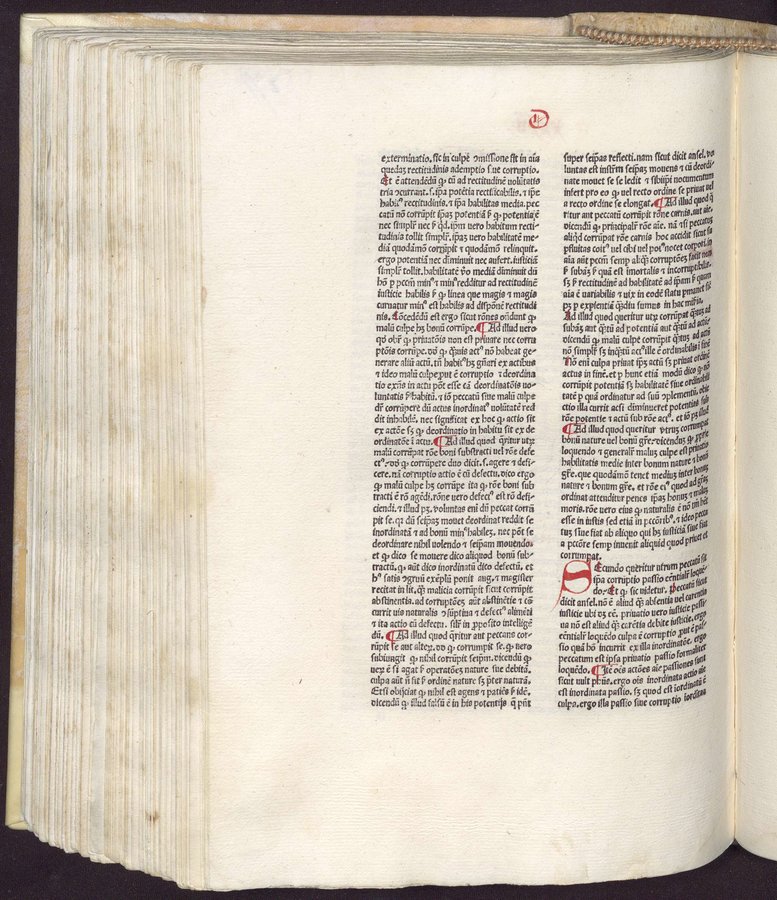 exterminatio. sic in culpe ꝯmissione fit in aīa
quedaȝ rectitudinis ademptio siue corruptio.
Et ē attendēdū ꝙ cū ad rectitudinē volūtatis
tria ꝯcurrant. s. ipa potētia rectificabilis. ⁊ ipse
habitꝰ rectitudinis. ⁊ ipa habilitas media. pec
catū nō corrūpit ipaȝ potentiā
nec simplr̄ nec ipm vero habitum recti⸗
tudinis tollit simplr̄. ipaȝ vero habilitatē me⸗
diā quodāmō corrūpit ⁊ quodāmō relinquit.
ergo potentiā nec diminuit nec aufert. iusticiā
simplr̄ tollit. habilitatē v̊o mediā diminuit dū
hō ꝑ pctm̄ minꝰ ⁊ minꝰ redditur ad rectitudinē
iusticie habilis linea que magis ⁊ magis
curuatur minꝰ est habilis ad dispōnē rectitudi
nis. Cōcedēdū est ergo sicut rōnes ondunt ꝙ
malū culpe hȝ bonū corrūpe. ¶ Ad illud vero
qd̄ obr̄ ꝙ priuatōis non est priuare nec corru
ptōis corrūpe. dd̄ ꝙ ꝙuis actꝰ nō habeat ge⸗
nerare aliū actū. tn̄ habitꝰ hȝ gn̄ari ex actibus
⁊ ideo malū culpe put ē corruptio ⁊ deordina
tio exn̄s in actu pōt esse cā deordinatōis vo⸗
luntatis habitū. ⁊ iō peccatū siue malū culpe
dr̄ corrūpere dū actus inordinatꝰ volūtatē red
dit inhabilē. nec significat ex hoc ꝙ actio sit
ex actōe sȝ ꝙ deordinatio in habitu sit ex de
ordinatōe ī actu. ¶ Ad illud quod q̄ritur utꝝ
malū corrūpat rōne boni substracti vel rōne defe
ctꝰ. dd̄ ꝙ corrūpere duo dicit. s. agere ⁊ defi⸗
cere. nā corruptio actio ē cū defectu. dico ergo
ꝙ malū culpe hȝ corrūpe ita ꝙ rōne boni sub
tracti ē rō agēdi. rōne vero defectꝰ est rō defi⸗
ciendi. ⁊ illud pȝ. voluntas eni dū peccat corrū
pit se. qȝ dū seipaȝ mouet deordinat reddit se
inordinatā ⁊ ad bonū minꝰ habilez. nec pōt se
deordinare nihil volendo ⁊ seipam mouendo.
et ꝙ dico se mouere dico aliquod bonū sub⸗
tractū. ꝙ aūt dico inordinatū dico defectū. et
hꝰ satis ꝯgruū exēplū ponit aug. ⁊ magister
recitat in lit. ꝙ malicia corrūpit sicut corrūpit
abstinentia. ad corruptōeȝ aūt abstinētie ⁊ cū
currit vis naturalis ⁊ defectꝰ alimēti
⁊ ita actio cū defectu. silr̄ in ꝓposito intellige
dū. ¶ Ad illud quod q̄ritur aut peccans cor⸗
rūpit se aut alteꝝ. dd̄ ꝙ corrumpit se. ꝙ vero
subiungit ꝙ nihil corrūpit seipm. dicendū ꝙ
verꝝ ē si agat operatōeȝ nature sue debitā.
culpa aūt n̄ fit ordinē nature sȝ pter naturā.
Et si obijciat ꝙ nihil est agens ⁊ patiēs idē.
dicendū ꝙ illud falsū ē in his potentijs q̄ pn̄t
super seipas reflecti. nam sicut dicit ansel. vo
luntas est instrm̄ seipaȝ mouens ⁊ cū deordi⸗
nate mouet se se ledit ⁊ sibiipi nocumentum
infert pro eo ꝙ vel recto ordine se priuat vel
a recto ordine se elongat. ¶ Ad illud quod q̄
ritur aut peccatū corrūpit rōne carnis. aut aīe.
dicendū ꝙ principalr̄ rōe aīe. nā ⁊ si peccatuȝ
aliqd̄ corrūpat rōe carnis hoc accidit sicut su
pfluitas coitꝰ vel cibi vel potꝰ nocet corpori. in
aīa aūt pctm̄ semp aliqȝ corruptōeȝ facit
subaȝ qua est imortalis ⁊ incorruptibilis.
sȝ rectitudinē ad habilitatē ad ipam quam
aīa ē variabilis ⁊ vix in eodē statu pmanet sic
pȝ p expientiā qdiu sumus in hac misia.
Ad illud quod queritur utꝝ corrumpat q̄tuȝ ad
subaȝ aut q̄tū ad potentiā aut q̄tū ad actū.
dicendū ꝙ malū culpe corrūpit q̄tuȝ ad actū
nō simplr̄ sȝ inq̄tū actꝰ ille ē ordinabilis ī finē
Nō eni culpa priuat ipȝ actū sȝ priuat ordinē
actus in finē. et p hunc etiā modū dico ꝙ nō
corrūpit potentiā sȝ habilitatē siue ordinabili
tatē p quā ordinatur ad suū ꝯplementū. obie
ctio illa currit acsi diminueret potentias sub
rōe potentie ⁊ actū sub rōe actꝰ. et iō pȝ illud
¶ Ad illud quod queritur utrum corrumpat
bonū nature vel bonū gr̄e. dicendum ꝙ prie
loquendo ⁊ generalr̄ malum culpe est priuatio
habilitatis medie inter bonum nature ⁊ bonū
gr̄e. que quodāmō tenet medium inter bonum
nature ⁊ bonum gr̄e. et rōe eiꝰ quod ad gr̄aȝ
ordinat attenditur penes ipaȝ bonus ⁊ malus
moris. rōne vero eius ꝙ naturalis ē
esse in iustis sed etiā in pctōribꝰ. ⁊ ideo pecca
tuȝ siue fiat ab aliquo qui hȝ iusticiā siue fiat
a pctōre semp inuenit aliquid quod priuet et
corrumpat.
SEcundo queritur utrum peccatū sit
ipa corruptio passio eēntialr̄ loquē
do. Et ꝙ sic videtur. Peccatū sicut
dicit ansel. nō ē aliud ꝙ absentia vel carentia
iusticie ubi dȝ eē. priuatio vero iusticie passi⸗
ua nō est aliud ꝙ carētia debite iusticie. ergo
eēntialr̄ loquēdo culpa ē corruptio put ē pas⸗
sio quā hō incurrit ex illa inordinatōe. ergo
peccatum est ipsa priuatio passio formaliter
loquēdo. ¶ Itē ois actōes aīe passiones sunt
sicut vult ergo ois inordinata actio aīe
est inordinata passio. sȝ quod est iordinatū ē
culpa. ergo illa passio siue corruptio iordinata